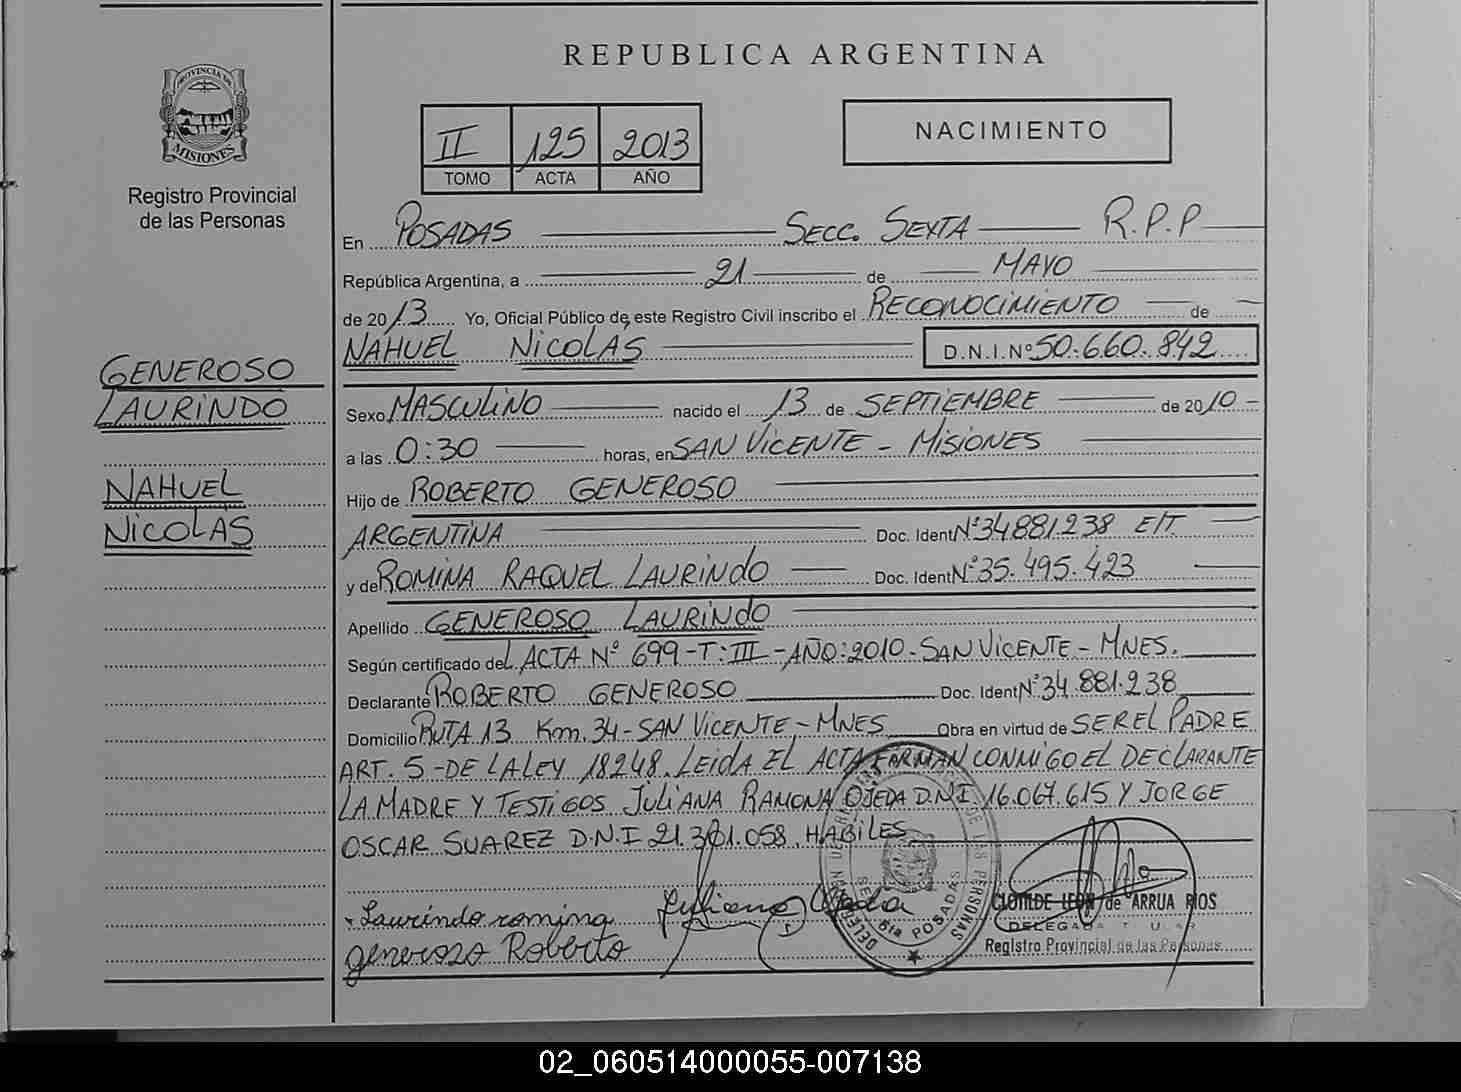 REPUBLICA ARGENTINA
PROVINCIA DE MISIONES
Registro Provincial
de las Personas
II 125 2013
TOMO ACTA AÑO
NACIMIENTO
GENEROSO
LAURINDO
NAHUEL
NICOLÁS
En POSADAS SECC. SEXTA R.P.P
República Argentina, a 21 de MAYO
de 2013 Yo, Oficial Público de este Registro Civil inscribo el RECONOCIMIENTO de
NAHUEL NICOLÁS D.N.I.Nº 50.660.842
Sexo MASCULINO nacido el 13 de SEPTIEMBRE de 2010 -
a las 0:30 horas, en SAN VICENTE - MISIONES
Hijo de ROBERTO GENEROSO
ARGENTINA Doc. Ident Nº 34.881.238 E/T.
y de ROMINA RAQUEL LAURINDO Doc. Ident Nº 35.495.423
Apellido GENEROSO LAURINDO
Según certificado del ACTA Nº 699-T:III-AÑO:2010-SAN VICENTE-MNES.
Declarante ROBERTO GENEROSO Doc. Ident Nº 34.881.238
Domicilio RUTA 13 Km.34-SAN VICENTE-MNES Obra en virtud de SER EL PADRE
ART. 5-DE LA LEY 18248. LEIDA EL ACTA FIRMAN CONMIGO EL DECLARANTE
LA MADRE Y TESTIGOS JULIANA RAMONA OJEDA D.N.I. 16.067.615 Y JORGE
OSCAR SUAREZ D.N.I 21.301.058. HABILES
Laurindo romina Juliana Ojeda
generoso Roberto
CLOTILDE LEON de ARRUA RIOS
DELEGADA TITULAR
Registro Provincial de las Personas
02_060514000055-007138